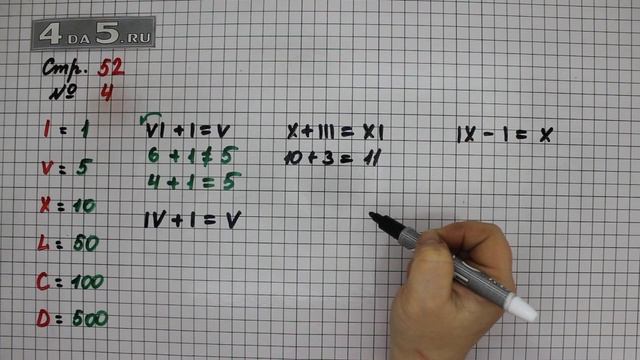 4DA5.RU
Стр. 52
№ 4
I = 1
V = 5
X = 10
L = 50
C = 100
D = 500
VI + I = V
6 + 1 ≠ 5
4 + 1 = 5
IV + I = V
X + III = XI
10 + 3 = 11
IX - I = X